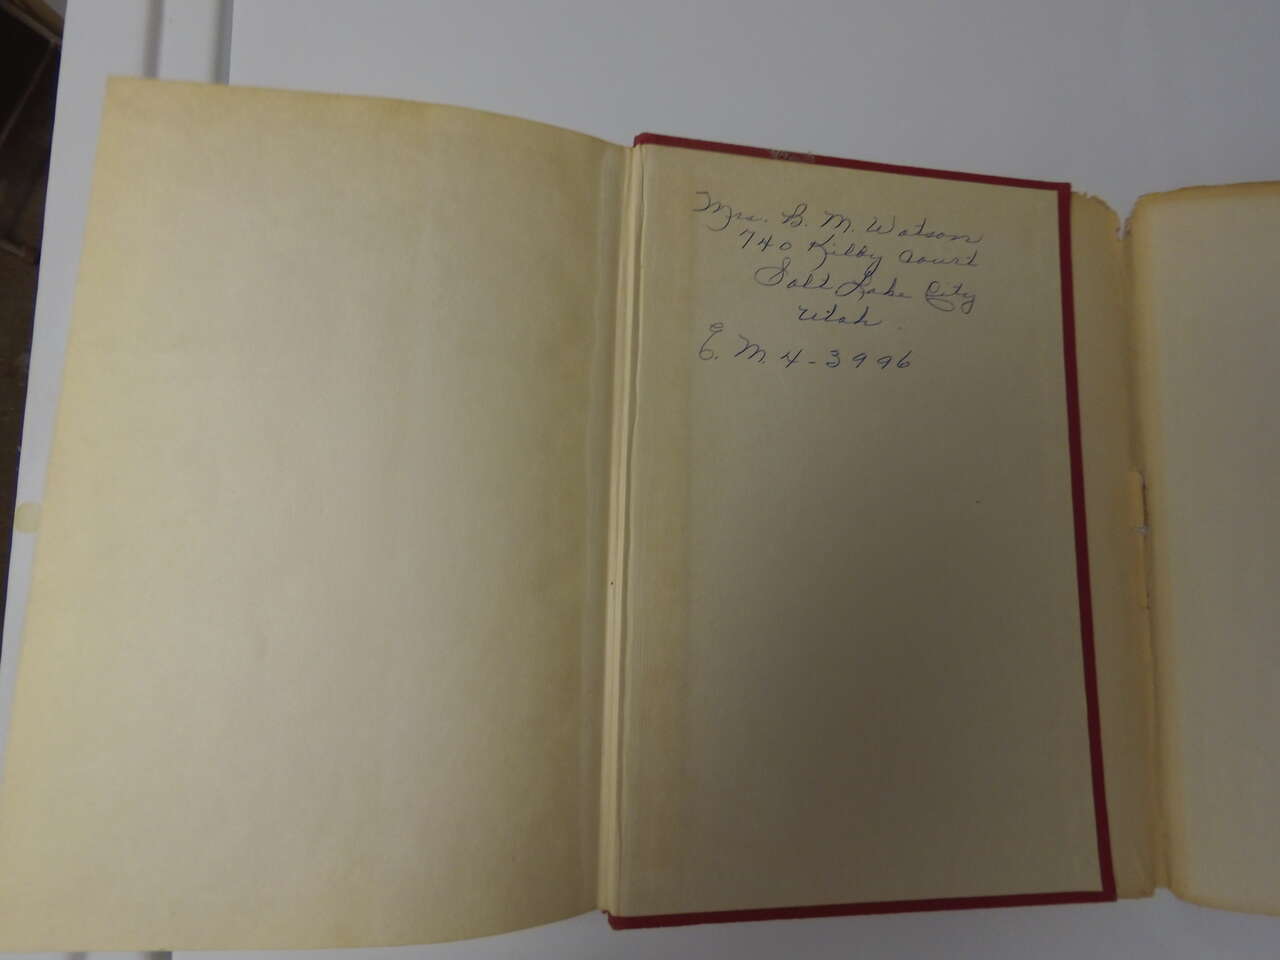 Mrs. B. M. Watson
740 Kilby Court
Salt Lake City
Utah.
E. M. 4-3996